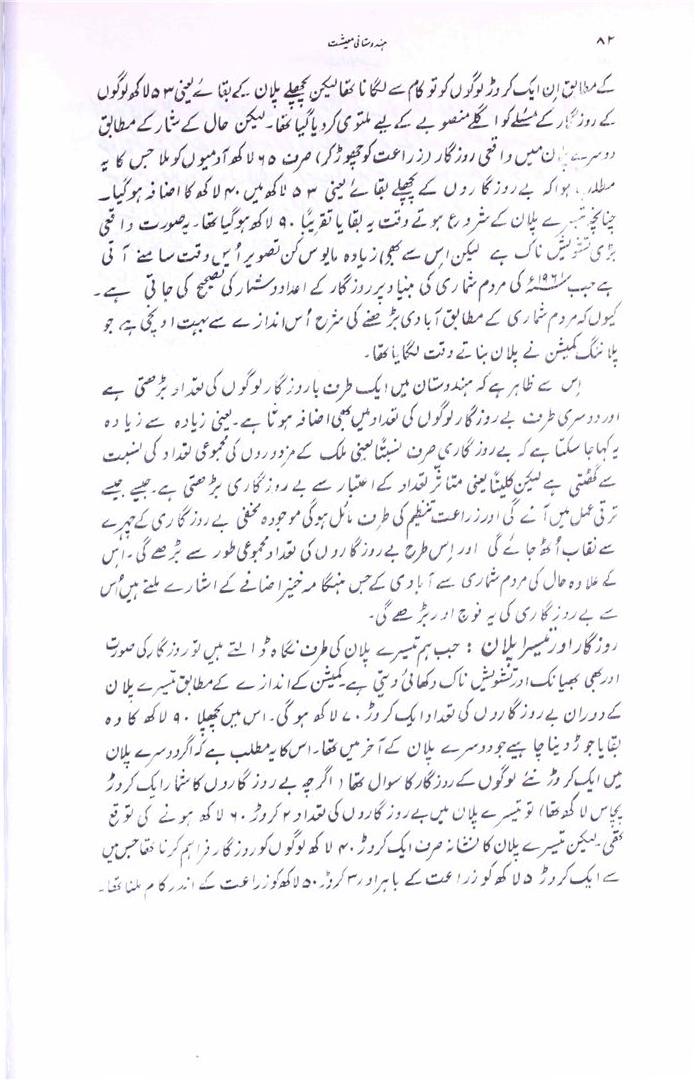 ۸۲
ہندوستانی معیشت
کے مطابق اِن ایک کروڑ لوگوں کو تو کام سے لگانا تھا لیکن پچھلے پلان کے بقائے یعنی ۵۳ لاکھ لوگوں
کے روزگار کے مسئلے کو اگلے منصوبے کے لیے ملتوی کر دیا گیا تھا۔ لیکن حال کے شمار کے مطابق
دوسرے پلان میں واقعی روزگار (زراعت کو چھوڑ کر) صرف ۶۵ لاکھ آدمیوں کو ملا جس کا یہ
مطلب ہوا کہ بے روزگاروں کے پچھلے بقائے یعنی ۵۳ لاکھ میں ۴۰ لاکھ کا اضافہ ہو گیا۔
چنانچہ تیسرے پلان کے شروع ہوتے وقت یہ بقایا تقریباً ۹۰ لاکھ ہو گیا تھا۔ یہ صورت واقعی
بڑی تشویش ناک ہے لیکن اِس سے بھی زیادہ مایوس کن تصویر اُس وقت سامنے آتی
ہے جب ۱۹۶۱ء کی مردم شماری کی بنیاد پر روزگار کے اعداد و شمار کی تصحیح کی جاتی ہے۔
کیوں کہ مردم شماری کے مطابق آبادی بڑھنے کی شرح اُس اندازے سے بہت اونچی ہے، جو
پلاننگ کمیشن نے پلان بناتے وقت لگایا تھا۔
اِس سے ظاہر ہے کہ ہندوستان میں ایک طرف باروزگار لوگوں کی تعداد بڑھتی ہے
اور دوسری طرف بے روزگار لوگوں کی تعداد میں بھی اضافہ ہوتا ہے۔ یعنی زیادہ سے زیادہ
یہ کہا جا سکتا ہے کہ بے روزگاری صرف نسبتاً یعنی ملک کے مزدوروں کی مجموعی تعداد کی نسبت
سے گھٹتی ہے لیکن کلیتاً یعنی متاثر تعداد کے اعتبار سے بے روزگاری بڑھتی ہے۔ جیسے جیسے
ترقی عمل میں آئے گی اور زراعت تنظیم کی طرف مائل ہوگی موجودہ مخفی بے روزگاری کے چہرے
سے نقاب اُٹھ جائے گی اور اِس طرح بے روزگاروں کی تعداد مجموعی طور سے بڑھے گی۔ اِس
کے علاوہ حال کی مردم شماری سے آبادی کے جس ہنگامہ خیز اضافے کے اشارے ملتے ہیں اُس
سے بے روزگاری کی یہ فوج اور بڑھے گی۔
روزگار اور تیسرا پلان : جب ہم تیسرے پلان کی طرف نگاہ ڈالتے ہیں تو روزگار کی صورت
اور بھی بھیانک اور تشویش ناک دکھائی دیتی ہے۔ کمیشن کے اندازے کے مطابق تیسرے پلان
کے دوران بے روزگاروں کی تعداد ایک کروڑ ۷۰ لاکھ ہوگی۔ اس میں پچھلا ۹۰ لاکھ کا وہ
بقایا جوڑ دینا چاہیے جو دوسرے پلان کے آخر میں تھا۔ اس کا یہ مطلب ہے کہ اگر دوسرے پلان
میں ایک کروڑ نئے لوگوں کے روزگار کا سوال تھا (اگرچہ بے روزگاروں کا شمار ایک کروڑ
پچاس لاکھ تھا) تو تیسرے پلان میں بے روزگاروں کی تعداد ۲ کروڑ ۶۰ لاکھ ہونے کی توقع
تھی۔ لیکن تیسرے پلان کا نشانہ صرف ایک کروڑ ۴۰ لاکھ لوگوں کو روزگار فراہم کرنا تھا جس میں
سے ایک کروڑ ۵ لاکھ کو زراعت کے باہر اور ۳ کروڑ ۵۰ لاکھ کو زراعت کے اندر کام ملنا تھا۔